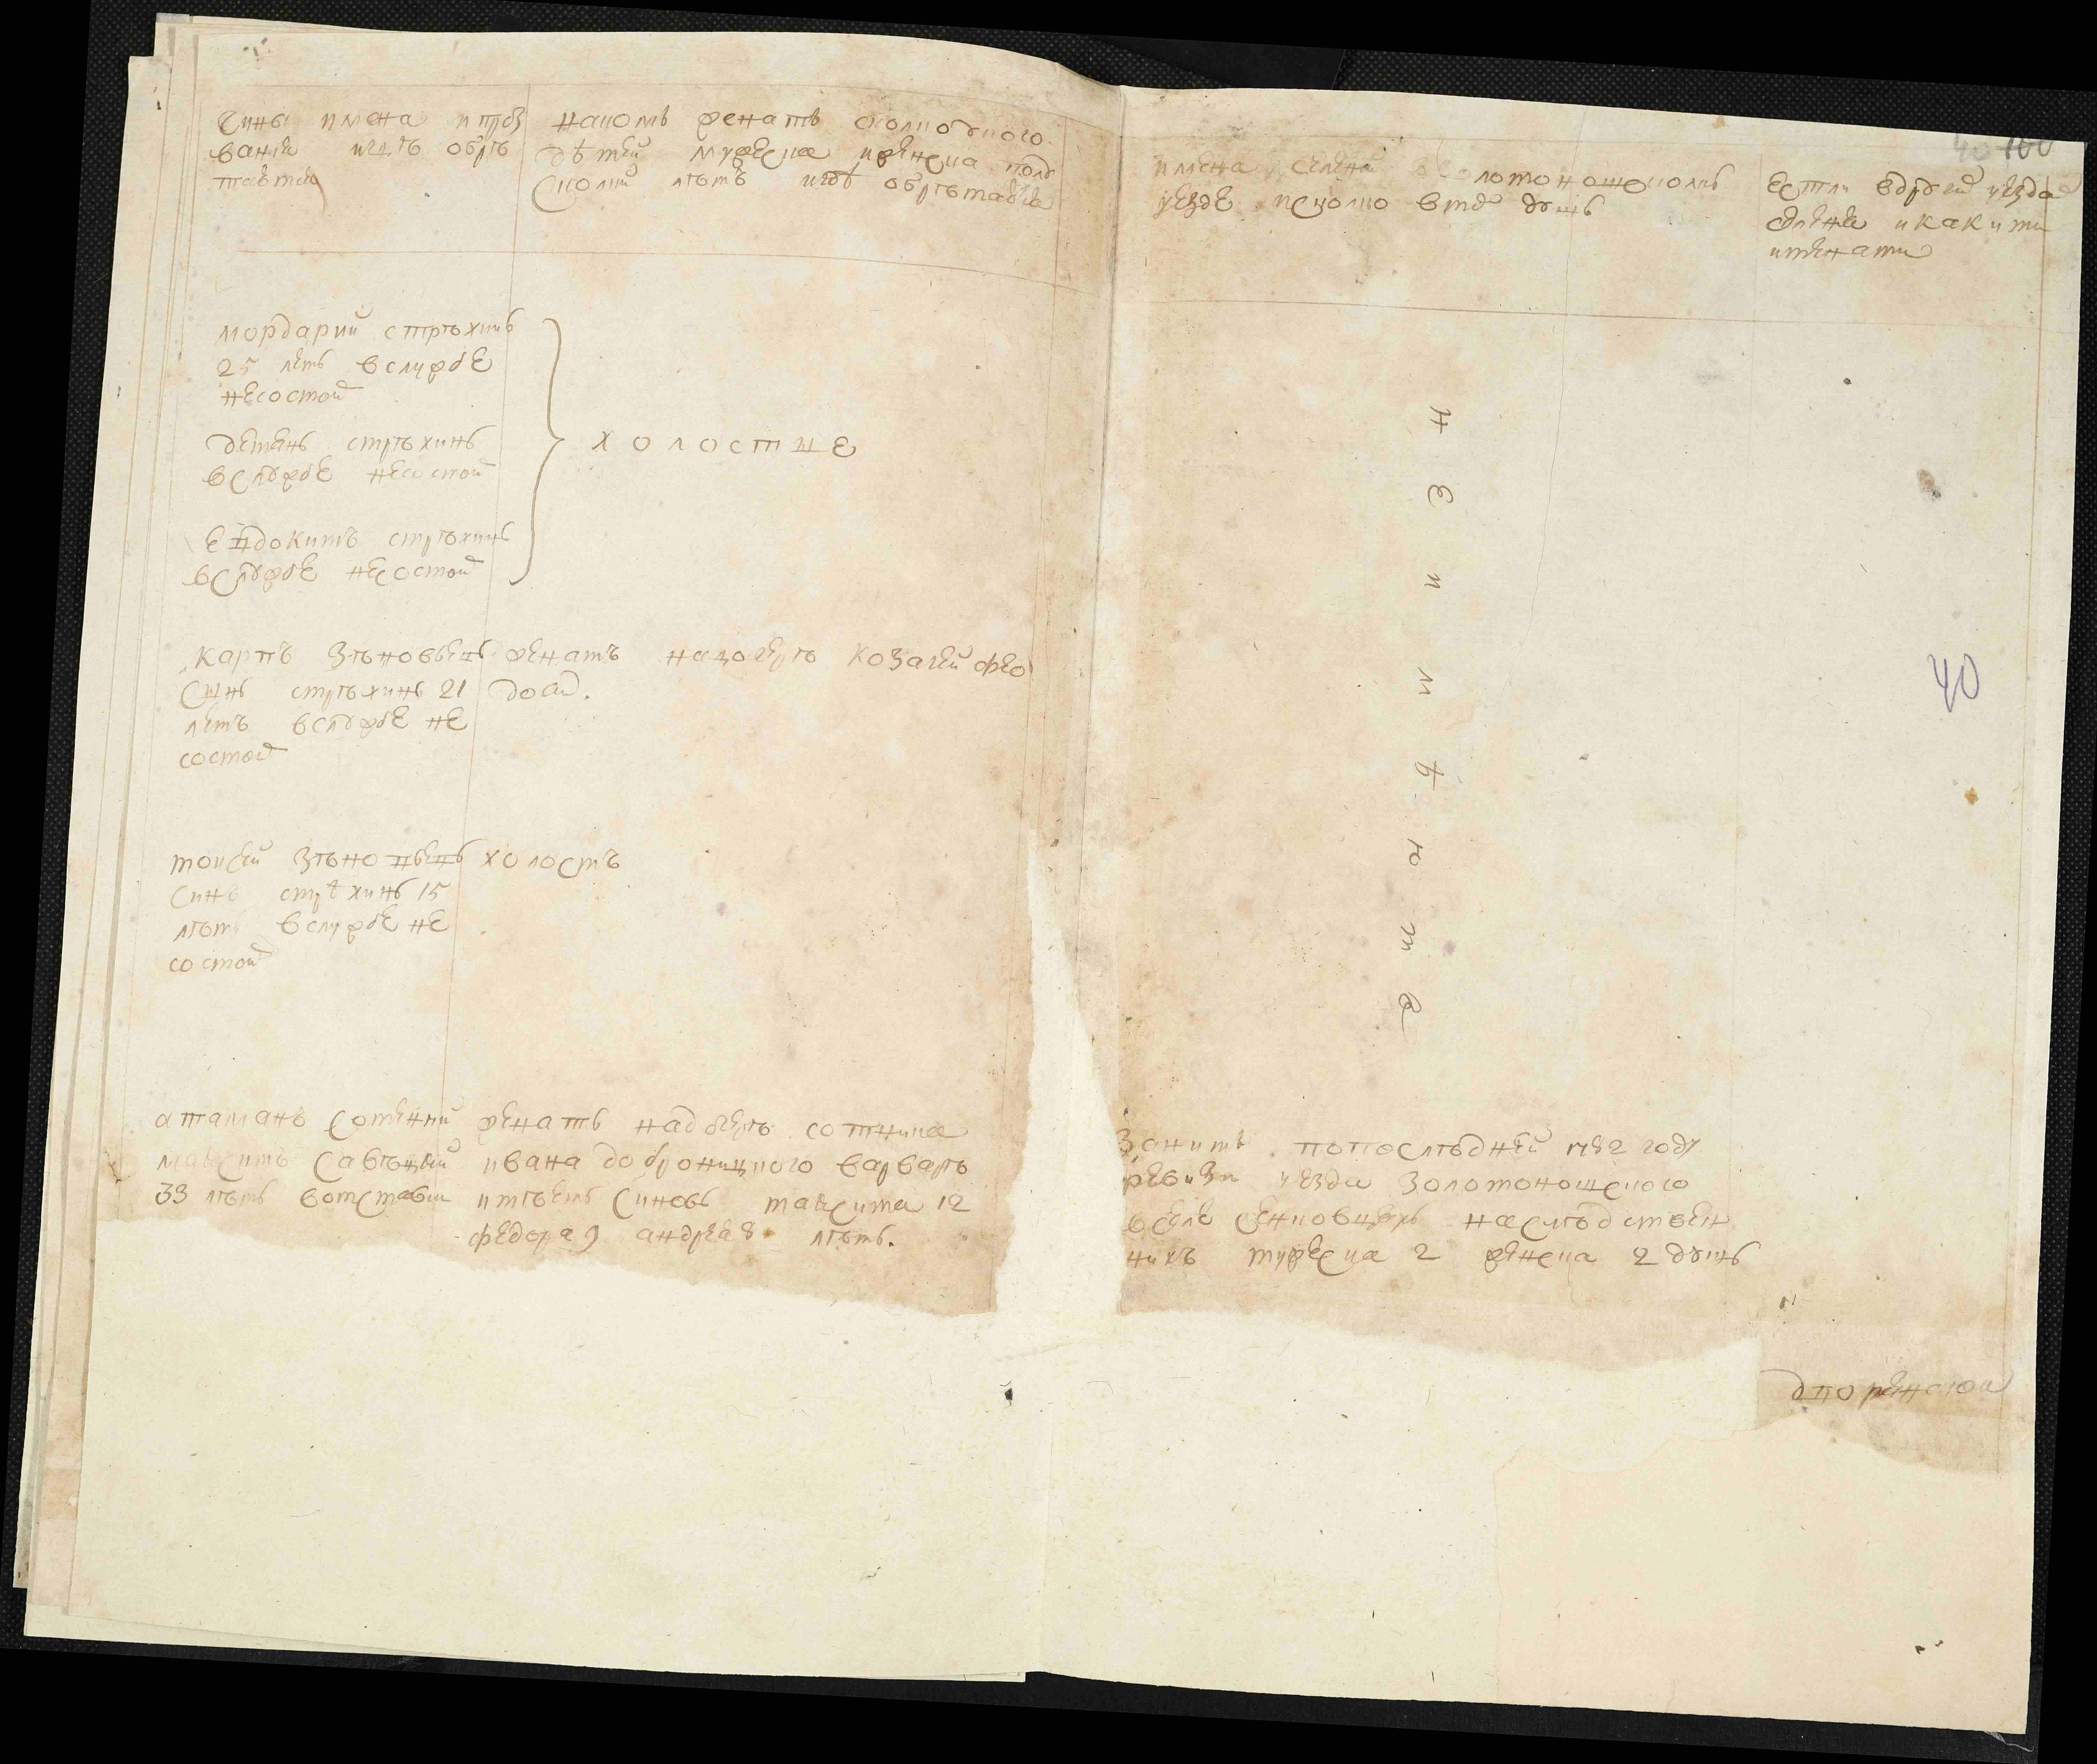 Чины имена и проз
вания и гдѣ обрѣ
таются
на комъ женатъ сколко у кого
дѣтей мужеска и женска полу
сколки лѣтъ и гдѣ обрѣтаются
имена селений в золотоношскомъ
уезде и сколко в тѣхъ душъ
40 100
естли в других уездах
селения и как
именами
мордарий стрѣхинъ
25 летъ в службе
не состоит
демянъ стрѣхинъ
в службе не состоит
евдокимъ стрѣхинъ
в службе не состоит
холостие
не имѣютъ
40
карпъ зѣновьевъ
синъ стрѣхинъ 21
летъ в службе не
состоит
женатъ на дочерѣ козачей фео
доси.
мокѣй зѣновьевъ
синъ стрѣхинъ 15
лѣтъ в службе не
состоит
холостъ
атаманъ сотенний
максимъ савѣцкий
33 лѣтъ в отставки
женатъ на дочерѣ сотника
ивана доброницкого варварѣ
имѣетъ синовъ максима 12
федора 9 андрея 8 лѣтъ.
за нимъ по послѣдней 1782 году
ревизи уезда золотоношского
в селе сенковцахъ наслѣдствен
нихъ мужеска 2 женска 2 душъ